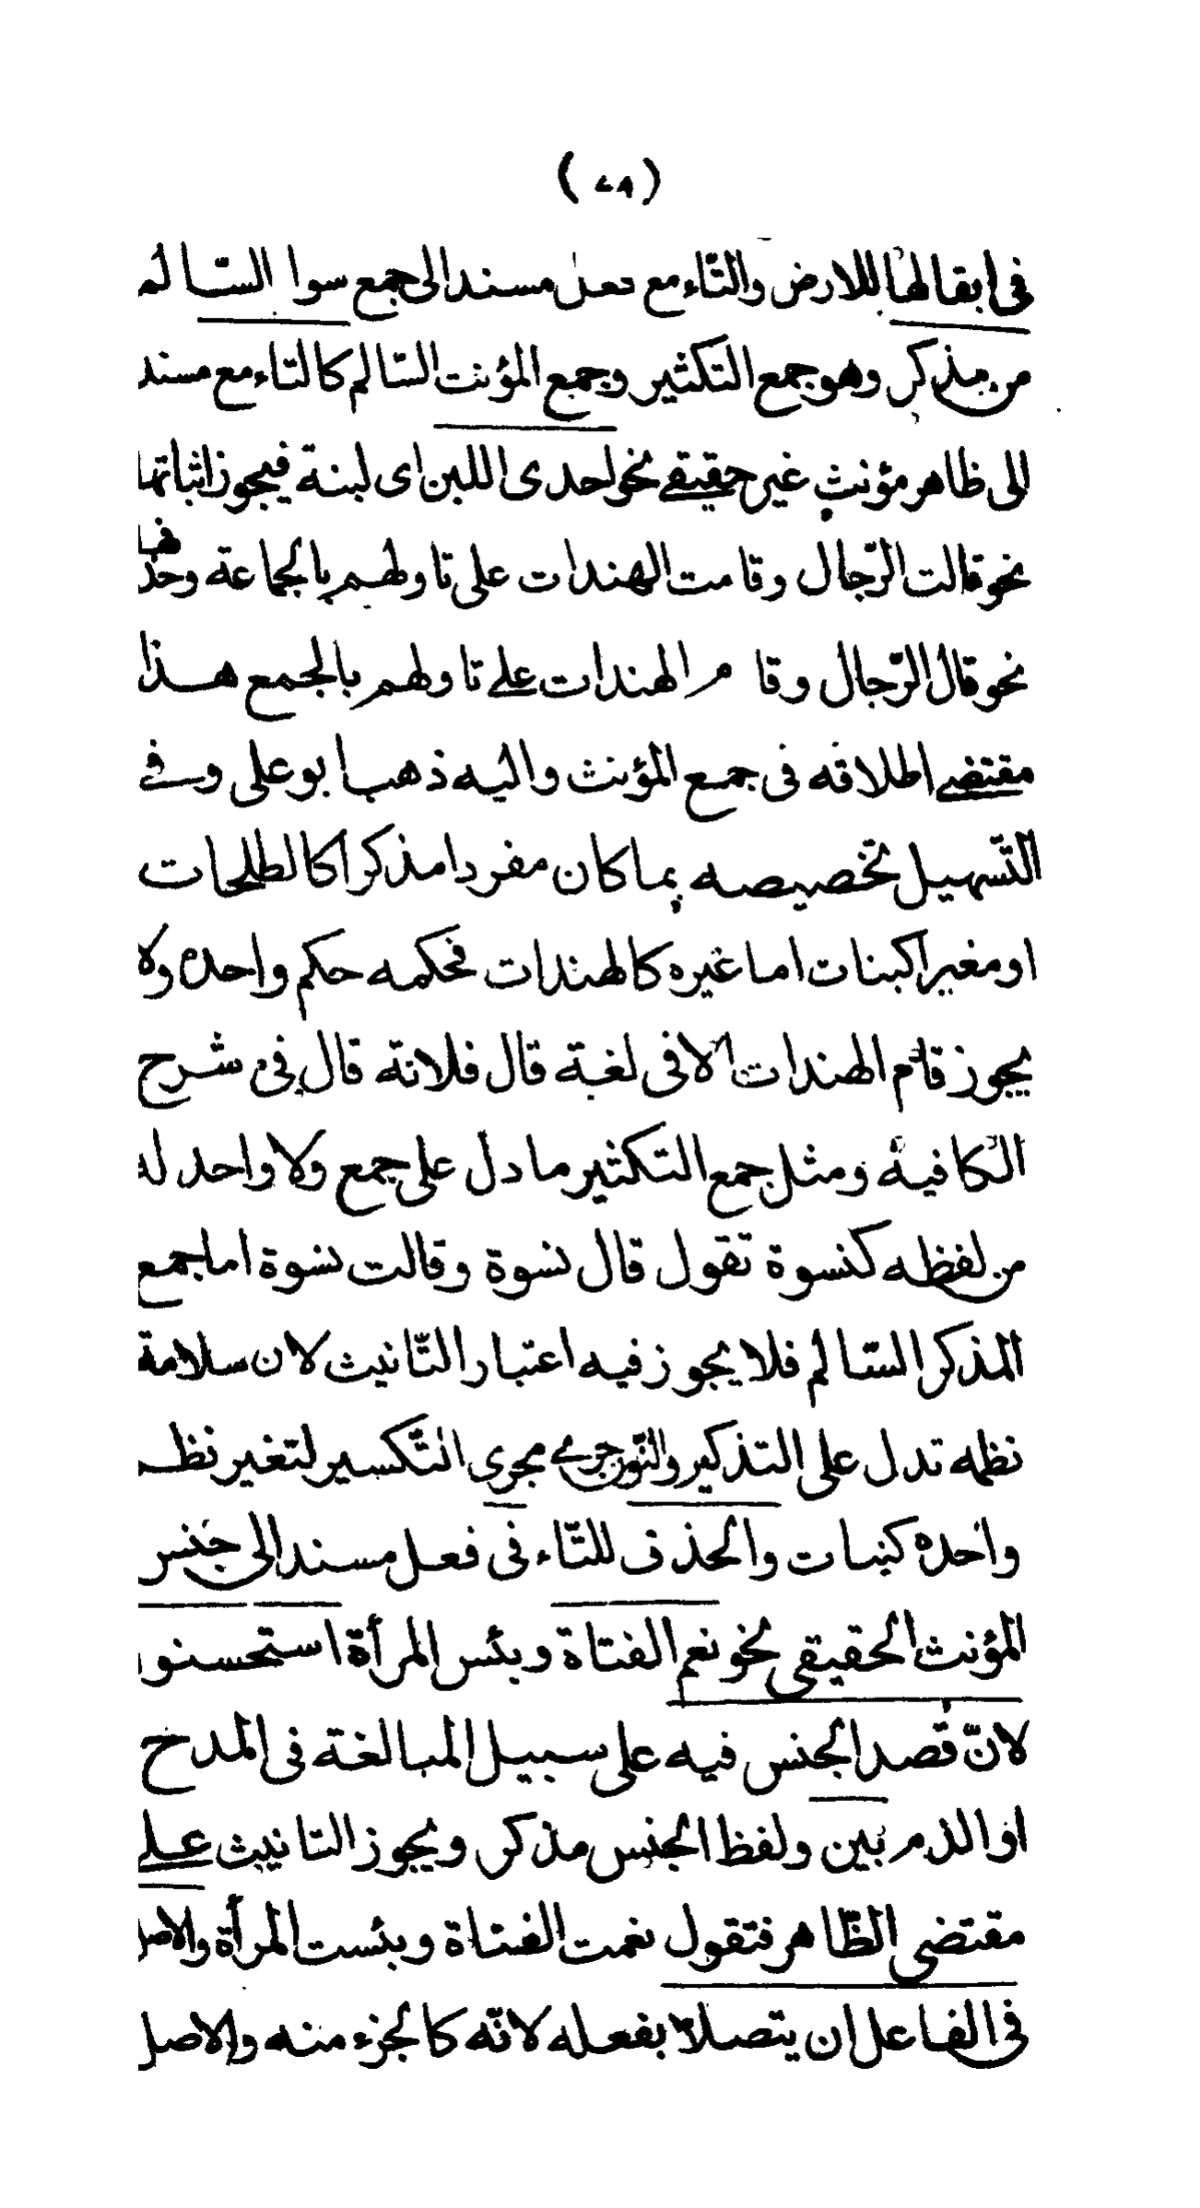 ( ٧٨ )
فى ابقالها للارض والتّاء مع فعل مسندا الى جمع سوا السّالم
من مذكر وهو جمع التكثير وجمع المؤنث السّالم كالتّاء مع مسند
الى ظاهر مؤنث غير حقيقے نحو احدى اللبن اى لبنة فيجوز اثباتها
نحو قالت الرّجال وقامت الهندات على تاولهم بالجماعة وحذفها
نحو قال الرّجال وقام الهندات علے تاولهم بالجمع هذا
مقتضے اطلاقه فى جمع المؤنث واليه ذهب ابو على وفے
التّسهيل تخصيصه بما كان مفردا مذكرا كالطلحات
او مغيرا كبنات اما غيره كالهندات فحكمه حكم واحده ولا
يجوز قام الهندات الا فى لغة قال فلانة قال فى شرح
الكافية ومثل جمع التكثير ما دل على جمع ولا واحد له
من لفظه كنسوة تقول قال نسوة وقالت نسوة اما جمع
المذكر السّالم فلا يجوز فيه اعتبار التّانيث لان سلامة
نظمه تدل على التذكير والبنون جرے مجرى التّكسير لتغير نظم
واحده كبنات والحذف للتّاء فى فعل مسند الى جنس
المؤنث الحقيقى نحو نعم الفتاة وبئس المرأة استحسنوا
لانّ قصد الجنس فيه على سبيل المبالغة فى المدح
او الذم بين ولفظ الجنس مذكر ويجوز التانيث علے
مقتضى الظّاهر فتقول نعمت الفتاة وبئست المرأة والاصل
فى الفاعل ان يتصلا بفعله لانّه كالجزء منه والاصل